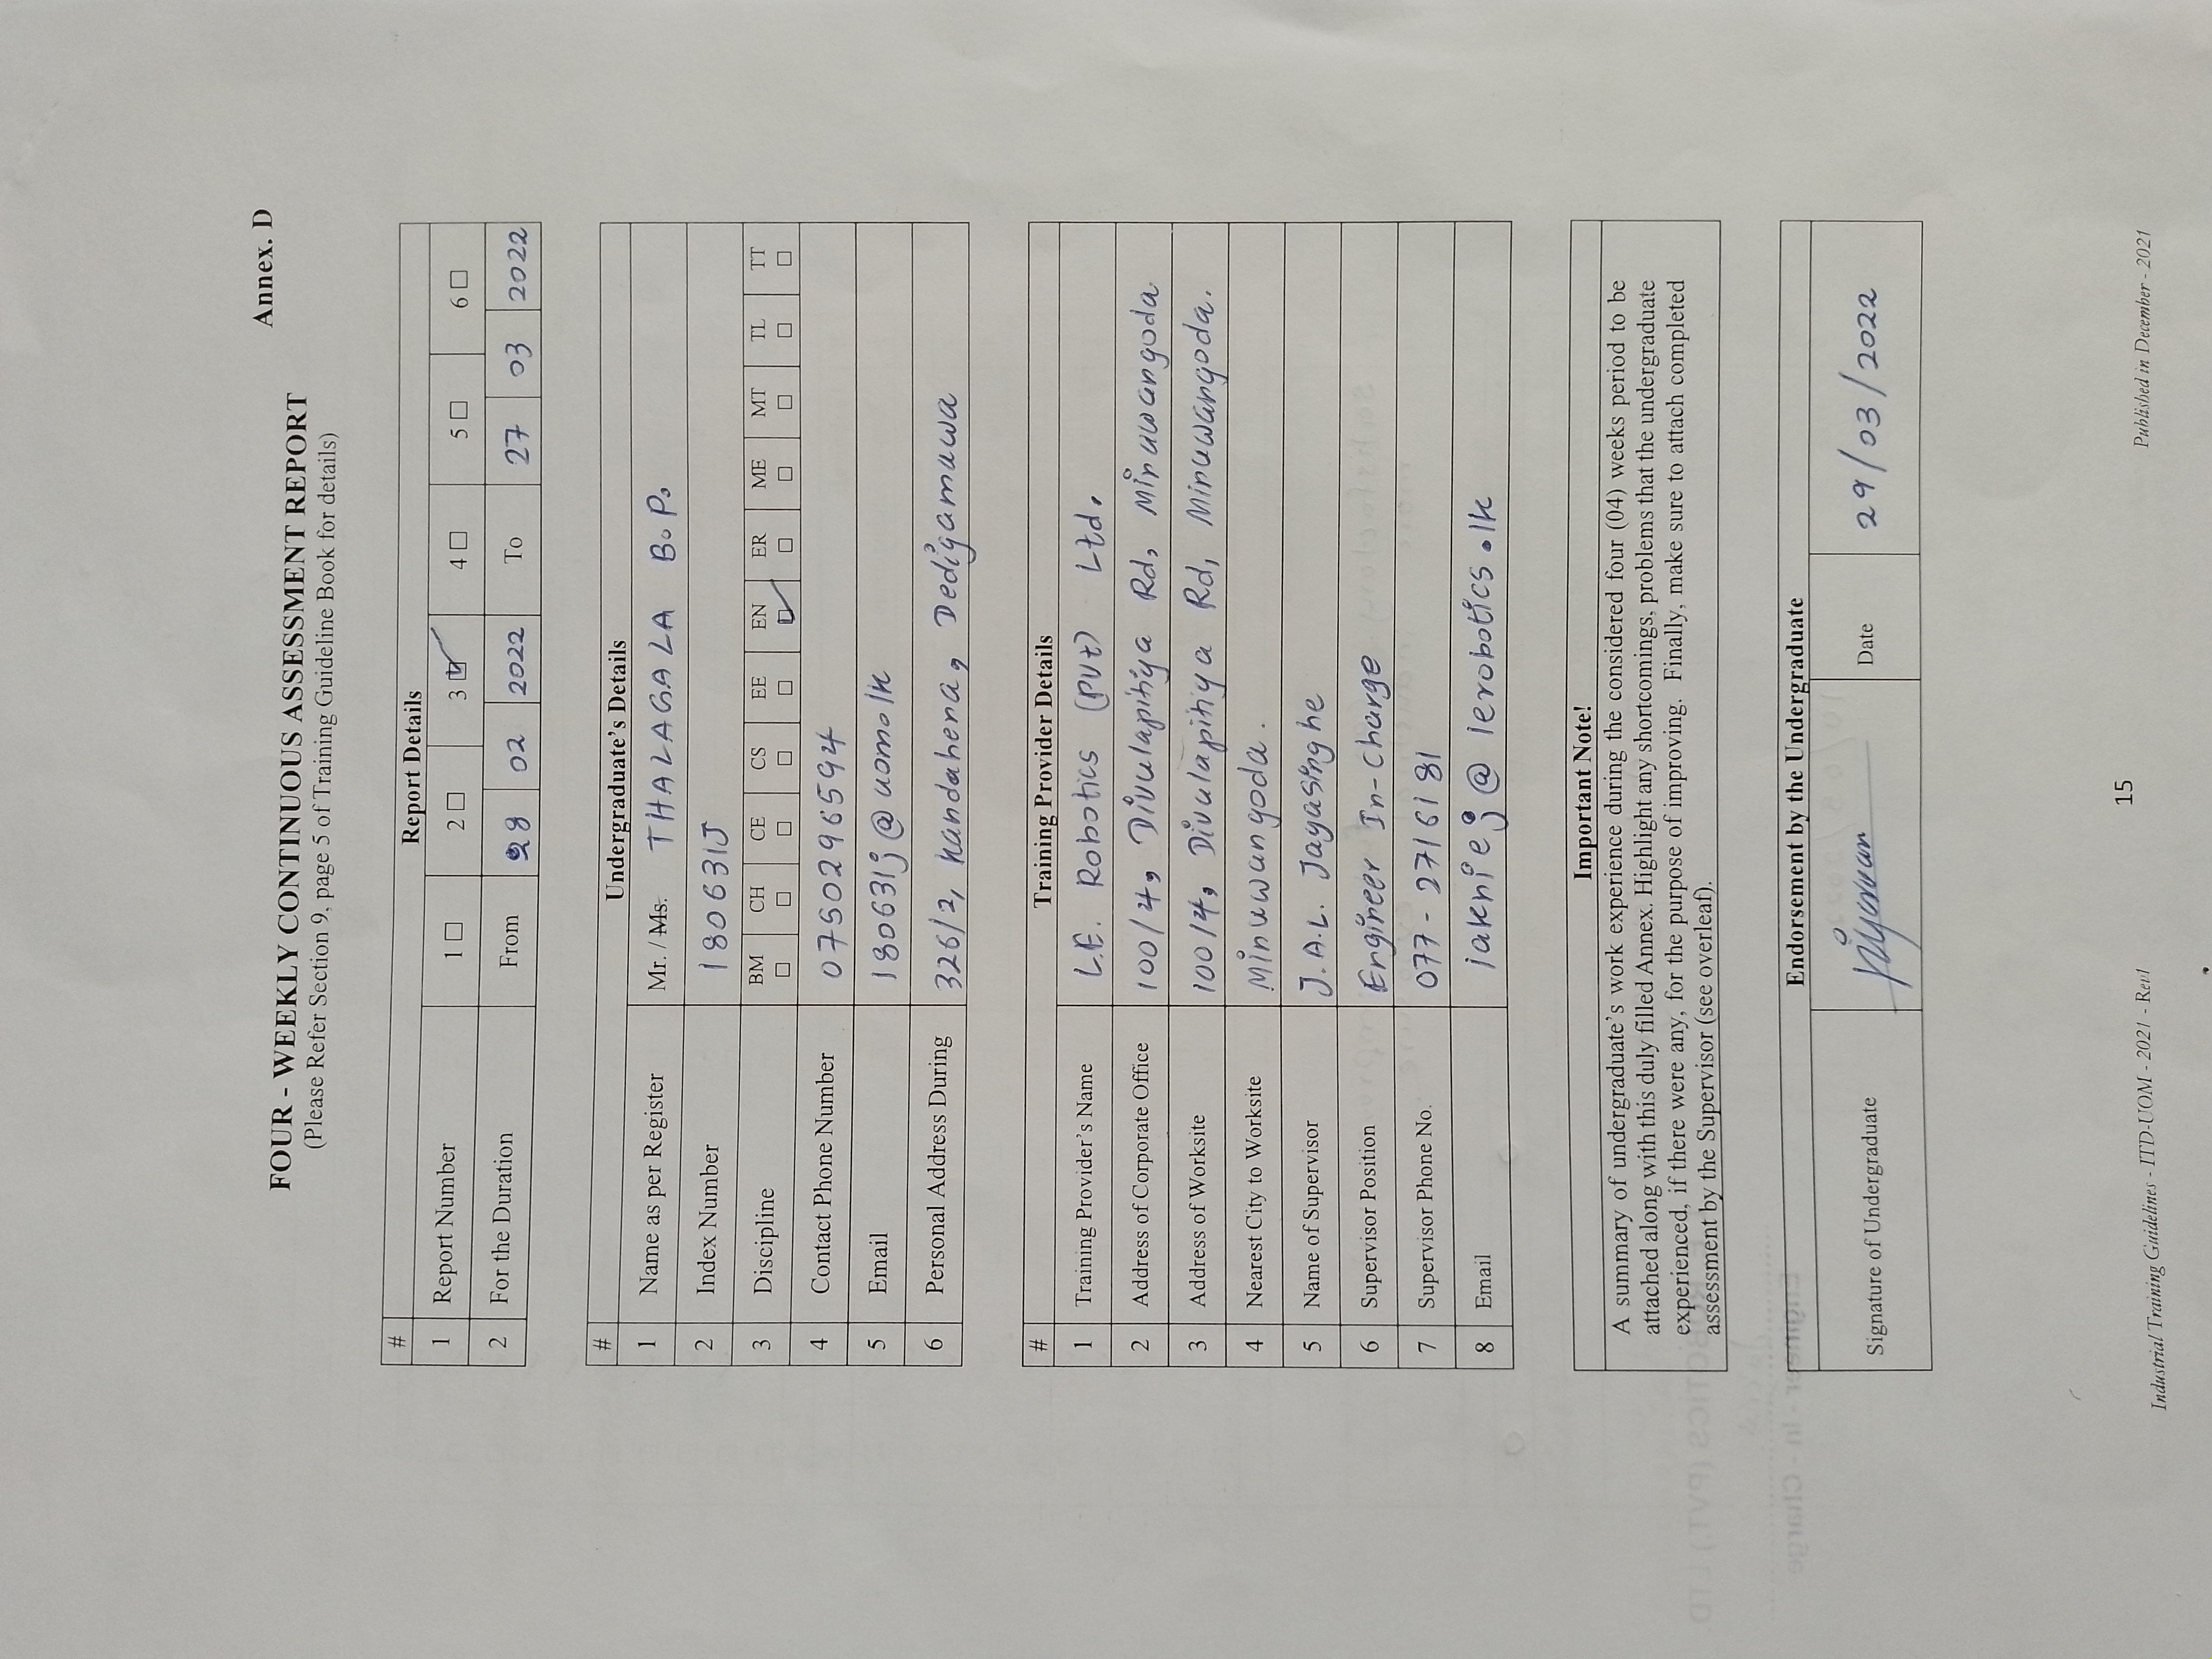 Annex. D
FOUR - WEEKLY CONTINUOUS ASSESSMENT REPORT
(Please Refer Section 9, page 5 of Training Guideline Book for details)
# Report Details
1 Report Number 1 ☐ 2 ☐ 3 ☑ 4 ☐ 5 ☐ 6 ☐
2 For the Duration From 28 02 2022 To 27 03 2022
# Undergraduate's Details
1 Name as per Register Mr. / Ms. THALAGALA B.P.
2 Index Number 180631J
3 Discipline BM ☐ CH ☐ CE ☐ CS ☐ EE ☐ EN ☑ ER ☐ ME ☐ MT ☐ TL ☐ TT ☐
4 Contact Phone Number 0750296594
5 Email 180631j@uom.lk
6 Personal Address During 326/2, Kandahena, Dedigamuwa
# Training Provider Details
1 Training Provider's Name L.E. Robotics (Pvt) Ltd.
2 Address of Corporate Office 100/4, Divulapitiya Rd, Minuwangoda
3 Address of Worksite 100/4, Divulapitiya Rd, Minuwangoda.
4 Nearest City to Worksite Minuwangoda.
5 Name of Supervisor J.A.L. Jayasinghe
6 Supervisor Position Engineer In-Charge
7 Supervisor Phone No. 077-2716181
8 Email @lerobotics.lk
Important Note!
A summary of undergraduate's work experience during the considered four (04) weeks period to be
attached along with this duly filled Annex. Highlight any shortcomings, problems that the undergraduate
experienced, if there were any, for the purpose of improving. Finally, make sure to attach completed
assessment by the Supervisor (see overleaf).
Endorsement by the Undergraduate
Signature of Undergraduate Date 29/03/2022
15
Industrial Training Guidelines - ITD-UOM - 2021 - Rev1 Published in December - 2021